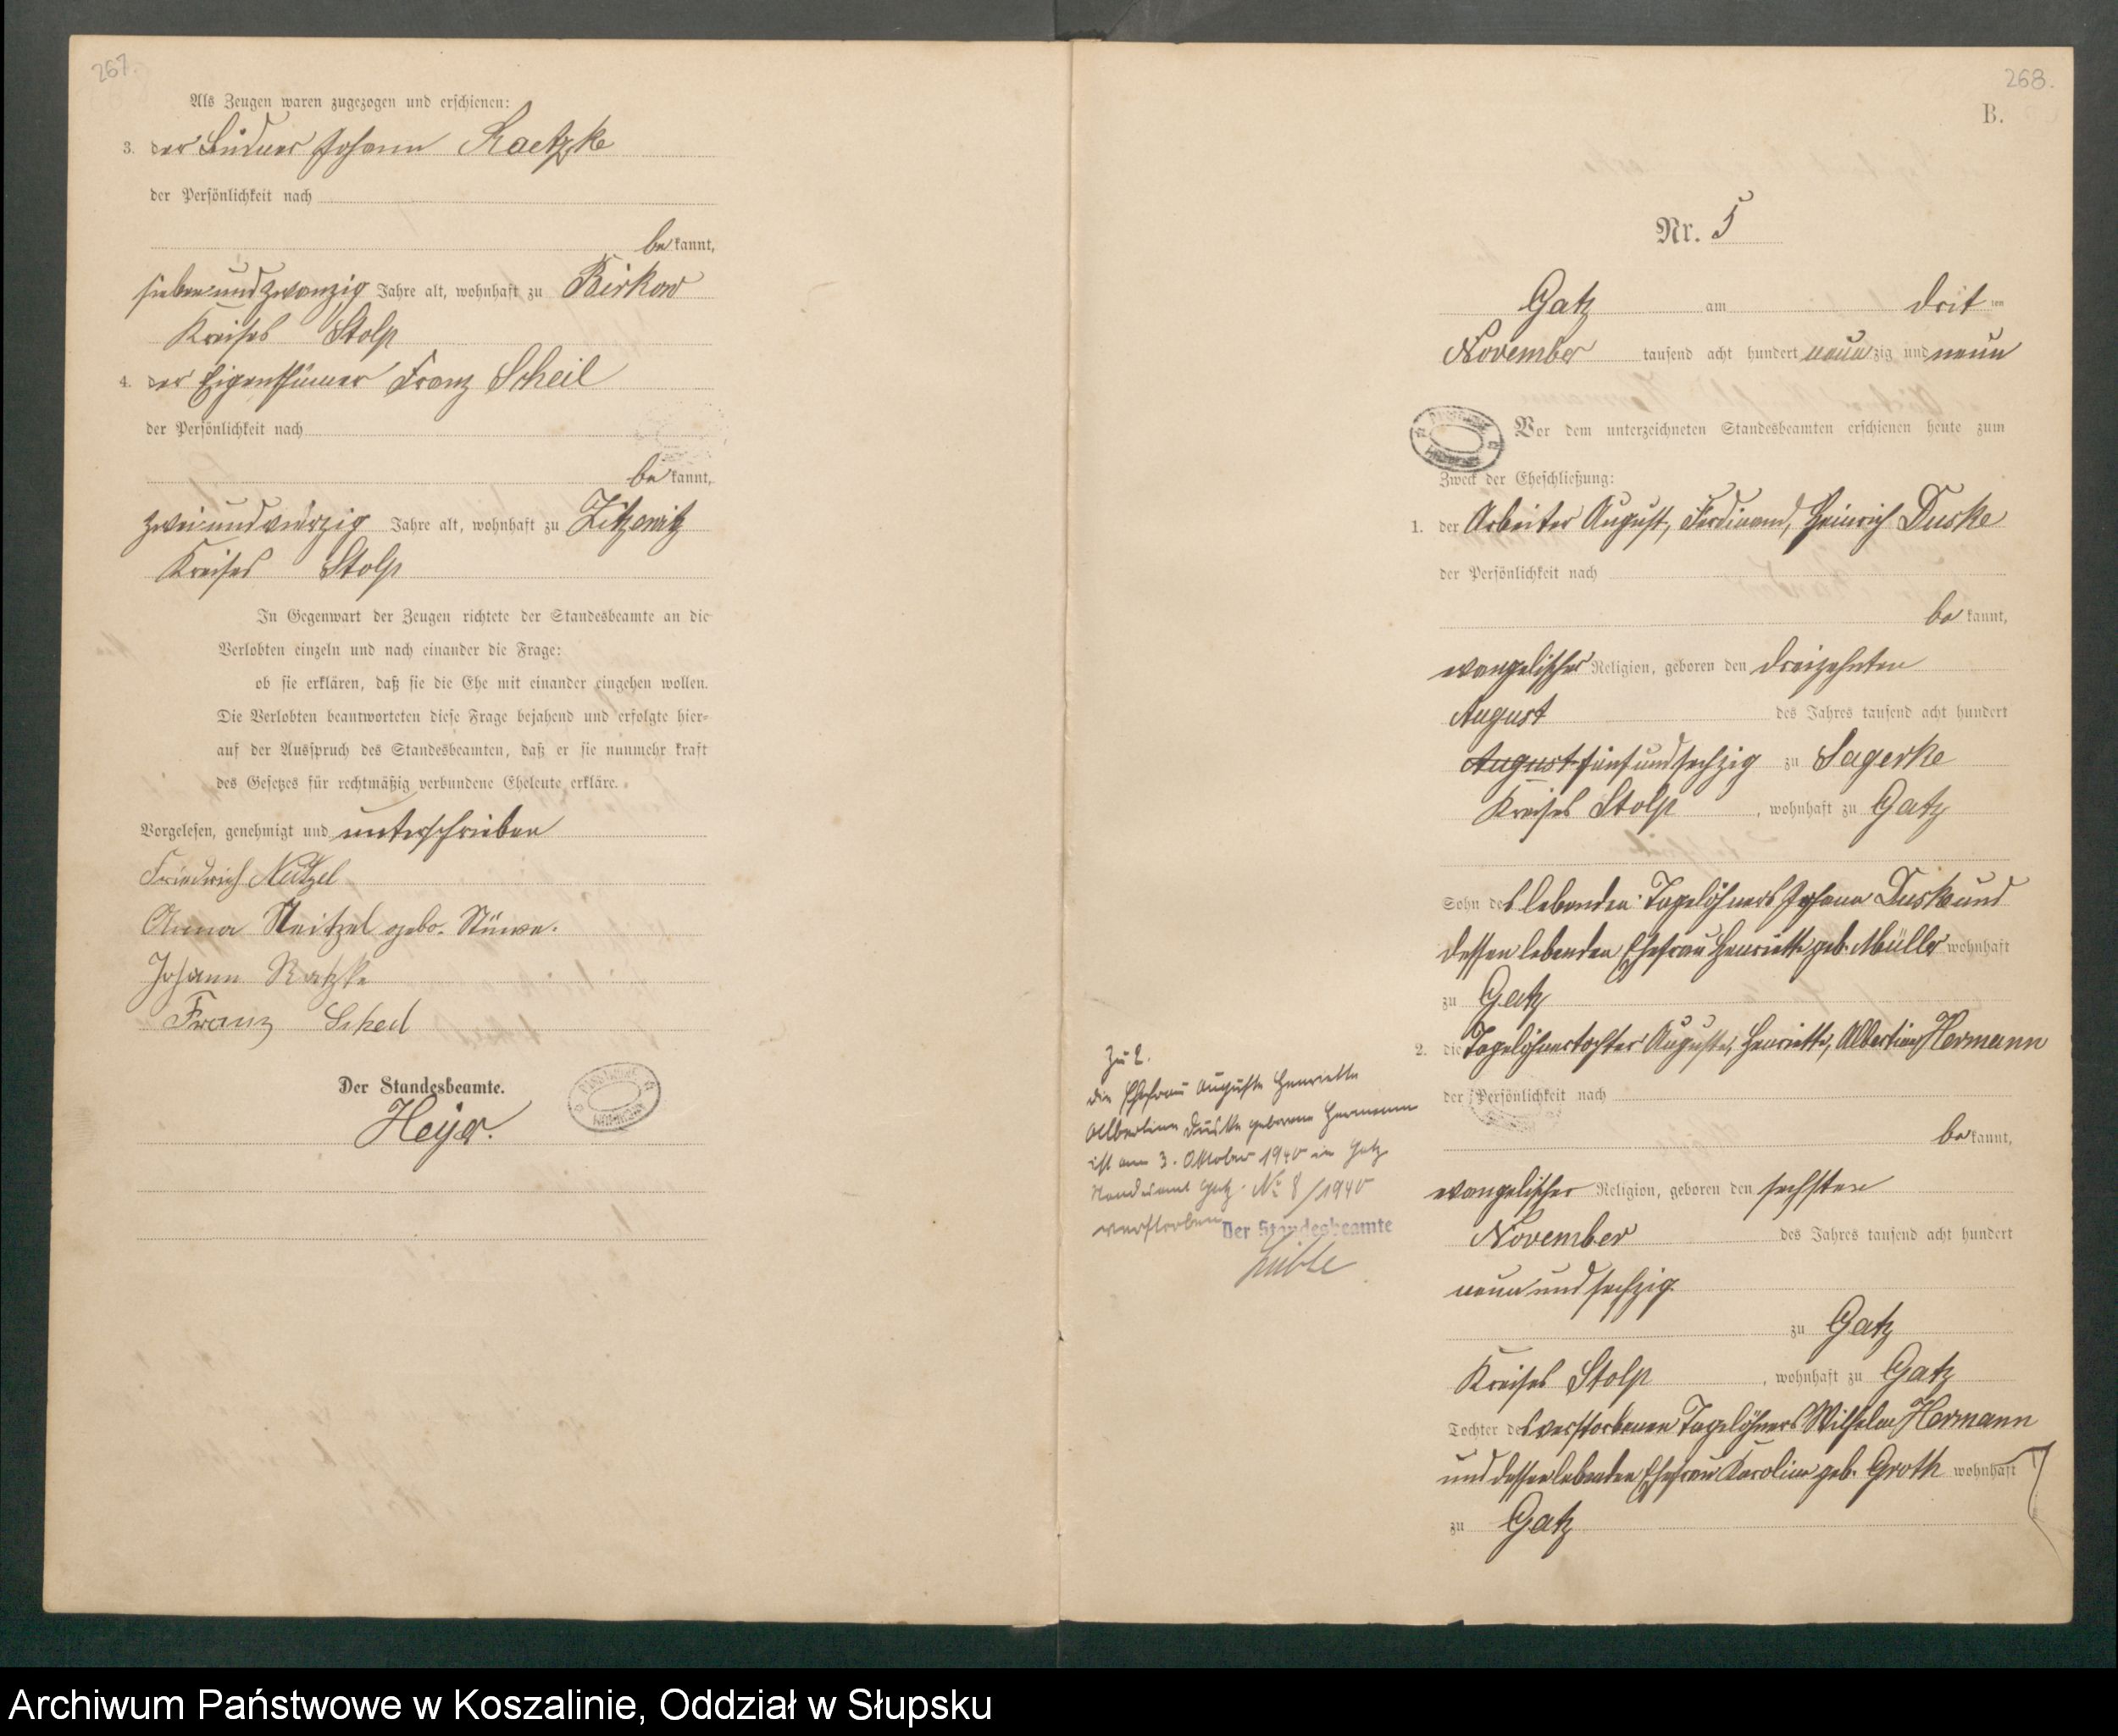 267.
Als Zeugen waren zugezogen und erschienen:
3. der Büdner Johann Raetzke
der Persönlichkeit nach
be kannt,
siebenundzwanzig Jahre alt, wohnhaft zu Birkow
Kreises Stolp
4. der Eigenthümer Franz Scheil
der Persönlichkeit nach
be kannt,
zweiundvierzig Jahre alt, wohnhaft zu Zitzewitz
Kreises Stolp
In Gegenwart der Zeugen richtete der Standesbeamte an die
Verlobten einzeln und nach einander die Frage:
ob sie erklären, daß sie die Ehe mit einander eingehen wollen.
Die Verlobten beantworteten diese Frage bejahend und erfolgte hier-
auf der Ausspruch des Standesbeamten, daß er sie nunmehr kraft
des Gesetzes für rechtmäßig verbundene Eheleute erkläre.
Vorgelesen, genehmigt und unterschrieben
Friedrich Neitzel
Anna Neitzel gebo. Stüwe.
Johann Ratzke
Franz Scheil
Der Standesbeamte.
Heyer.
268.
B.
Nr. 5
Gatz am drit ten
November tausend acht hundert neun zig und neun
Vor dem unterzeichneten Standesbeamten erschienen heute zum
Zweck der Eheschließung:
1. der Arbeiter August, Ferdinand, Heinrich Duske
der Persönlichkeit nach
be kannt,
evangelischer Religion, geboren den dreizehnten
August des Jahres tausend acht hundert
August fünfundsechzig zu Sagerke
Kreises Stolp, wohnhaft zu Gatz
Sohn des lebenden Tagelöhners Johann Duske und
dessen lebenden Ehefrau Henriette geb. Müller wohnhaft
zu Gatz
2. die Tagelöhnertochter Auguste, Henriette, Albertine Hermann
der Persönlichkeit nach
be kannt,
evangelischer Religion, geboren den sechsten
November des Jahres tausend acht hundert
neunundsechzig
zu Gatz
Kreises Stolp, wohnhaft zu Gatz
Tochter des verstorbenen Tagelöhners Wilhelm Hermann
und dessen lebenden Ehefrau Karoline geb. Groth wohnhaft
zu Gatz
Zu 2.
Die Ehefrau Auguste Henriette
Albertine Duske geborene Hermann
ist am 3. Oktober 1940 in Gatz
Standesamt Gatz No 8/1940
verstorben
Der Standesbeamte
Archiwum Państwowe w Koszalinie, Oddział w Słupsku